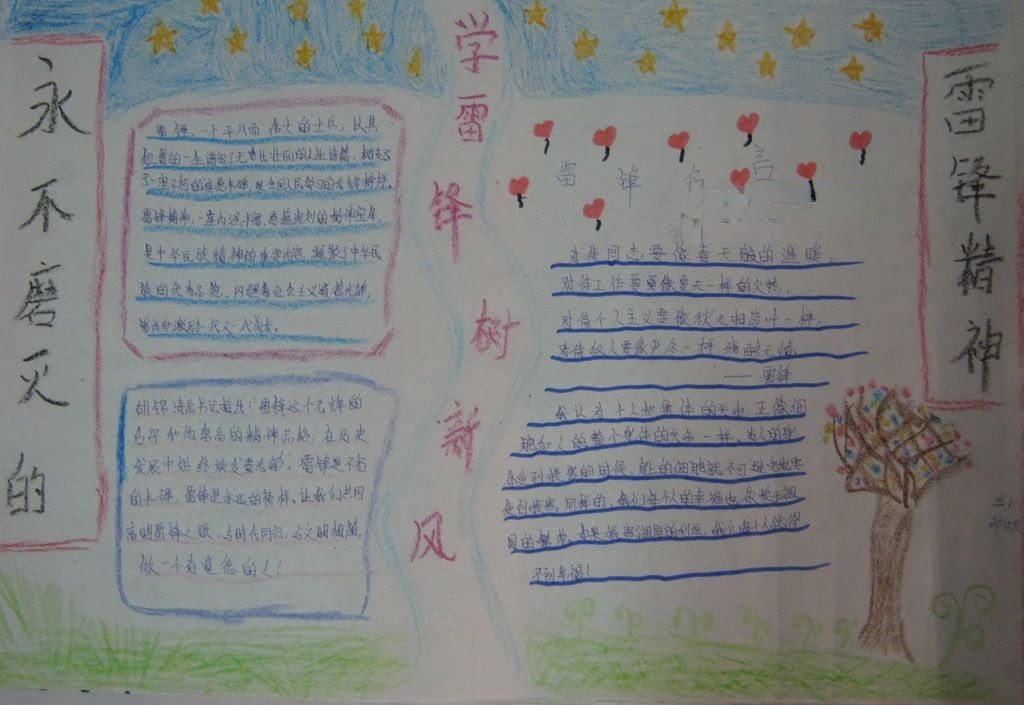 永不磨灭的
雷锋,一个平凡而伟大的士兵,以其
短暂的一生谱写了无比壮丽的人生诗篇,树起了
雷锋精神,一座内涵丰富
是中华民族精神的重要内容,凝聚了中华民
族的优秀品德,闪耀着社会主义
激励一代又一代成长。
胡锦涛总书记指出:雷锋这个光辉的
名字和他崇高的精神品格,在历史
发展中始终放发着光彩。雷锋是不朽
的丰碑,雷锋是永远的榜样,让我们共同
高唱雷锋之歌,与时代同行,与文明相随,
做一个有道德的人!
学雷锋树新风
雷锋名言
对待同志要像春天般的温暖,
对待工作要像夏天一样的火热,
对待个人主义要像秋风扫落叶一样,
对待敌人要像严冬一样残酷无情
——雷锋
我认为个人和集体的关系,正像细
胞和人的整个身体的关系一样。当人的身
体受到损害的时候,身上的细胞就不可避免也要
受到损害。同样的,我们每个人的幸福也依赖于祖
国的繁荣,如果损害了祖国的利益,我们每个人就得
不到幸福!
雷锋精神